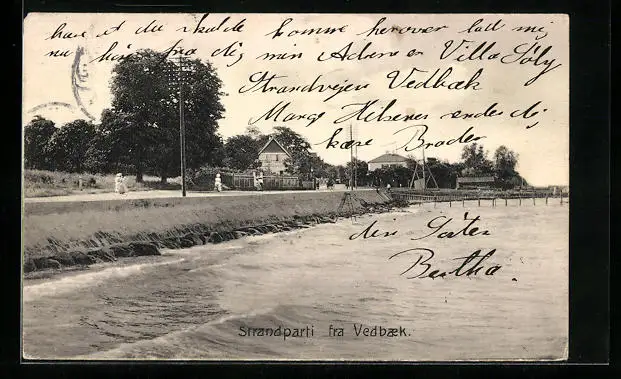 har et du skulde komme herover lad mig
nu høre fra dig min Adresse er Villa Søly
Strandvejen Vedbæk
Mange Hilsener sendes dig
kære Broder
din Søster
Bertha.
Strandparti fra Vedbæk.